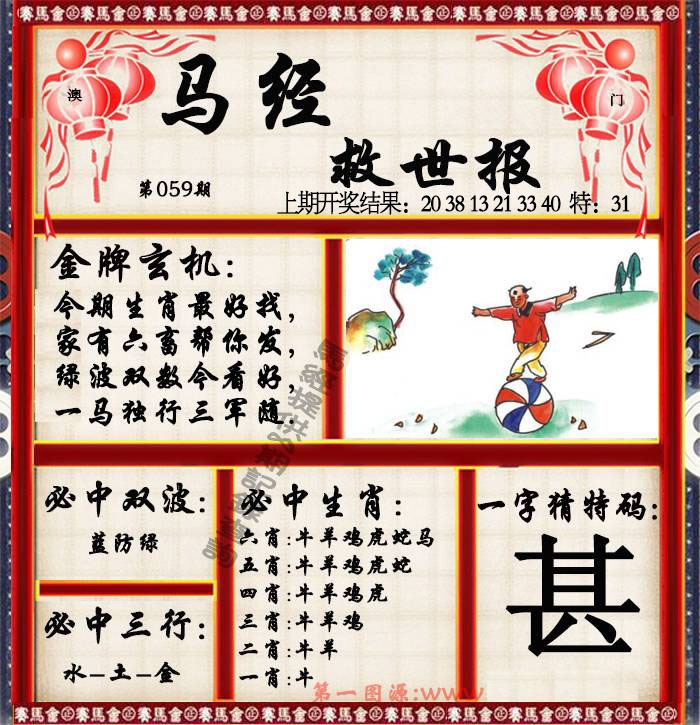 賽馬會金正賽馬會金正賽馬會金正賽馬會金正賽馬會金正賽馬會
澳
门
马经
救世报
第059期
上期开奖结果：20 38 13 21 33 40 特：31
金牌玄机：
今期生肖最好找，
家有六畜帮你发，
绿波双数今看好，
一马独行三军随.
必中双波：
蓝防绿
必中三行：
水–土–金
必中生肖：
六肖:牛羊鸡虎蛇马
五肖:牛羊鸡虎蛇
四肖:牛羊鸡虎
三肖:牛羊鸡
二肖:牛羊
一肖:牛
一字猜特码:
甚
第一图源:www